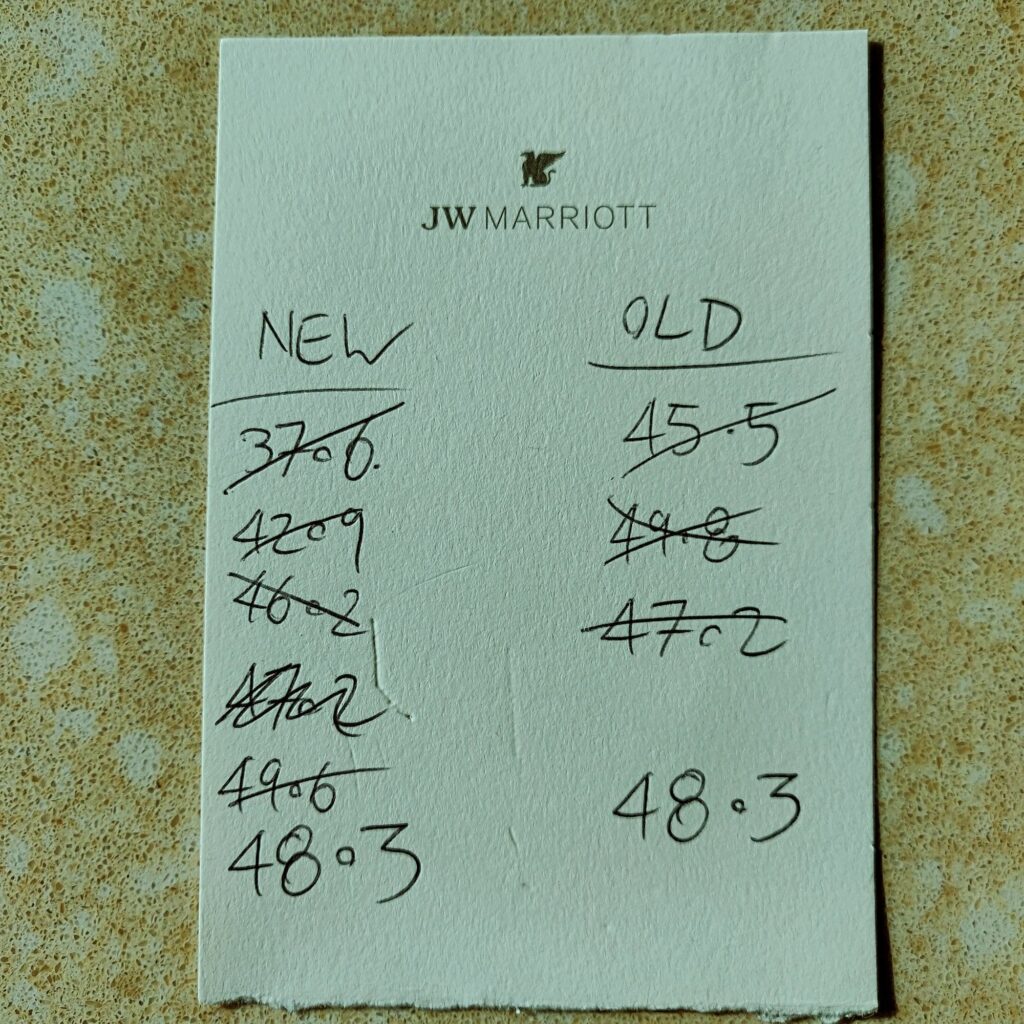 JW MARRIOTT
NEW OLD
37.6. 45.5
42.9 49.8
46.2 47.2
47.2
49.6
48.3 48.3